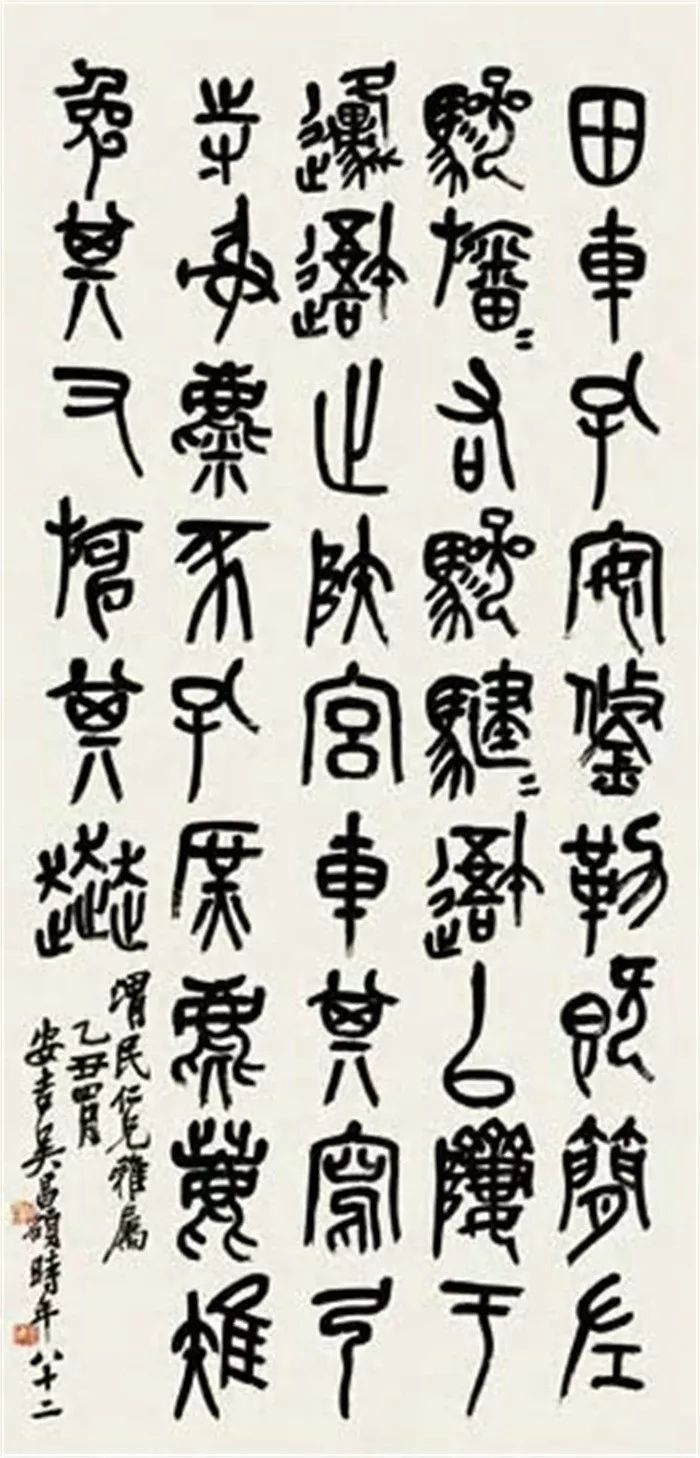 田車孔安鋚勒既簡左
驂旛〻右驂騝〻䢔以隮于
邍䢔止陝宮車其寫弓
寺射麋豕孔庶麀鹿雉
兔其又旃其奔
渭民仁兄雅屬
乙丑四月
安吉吳昌碩時年八十二